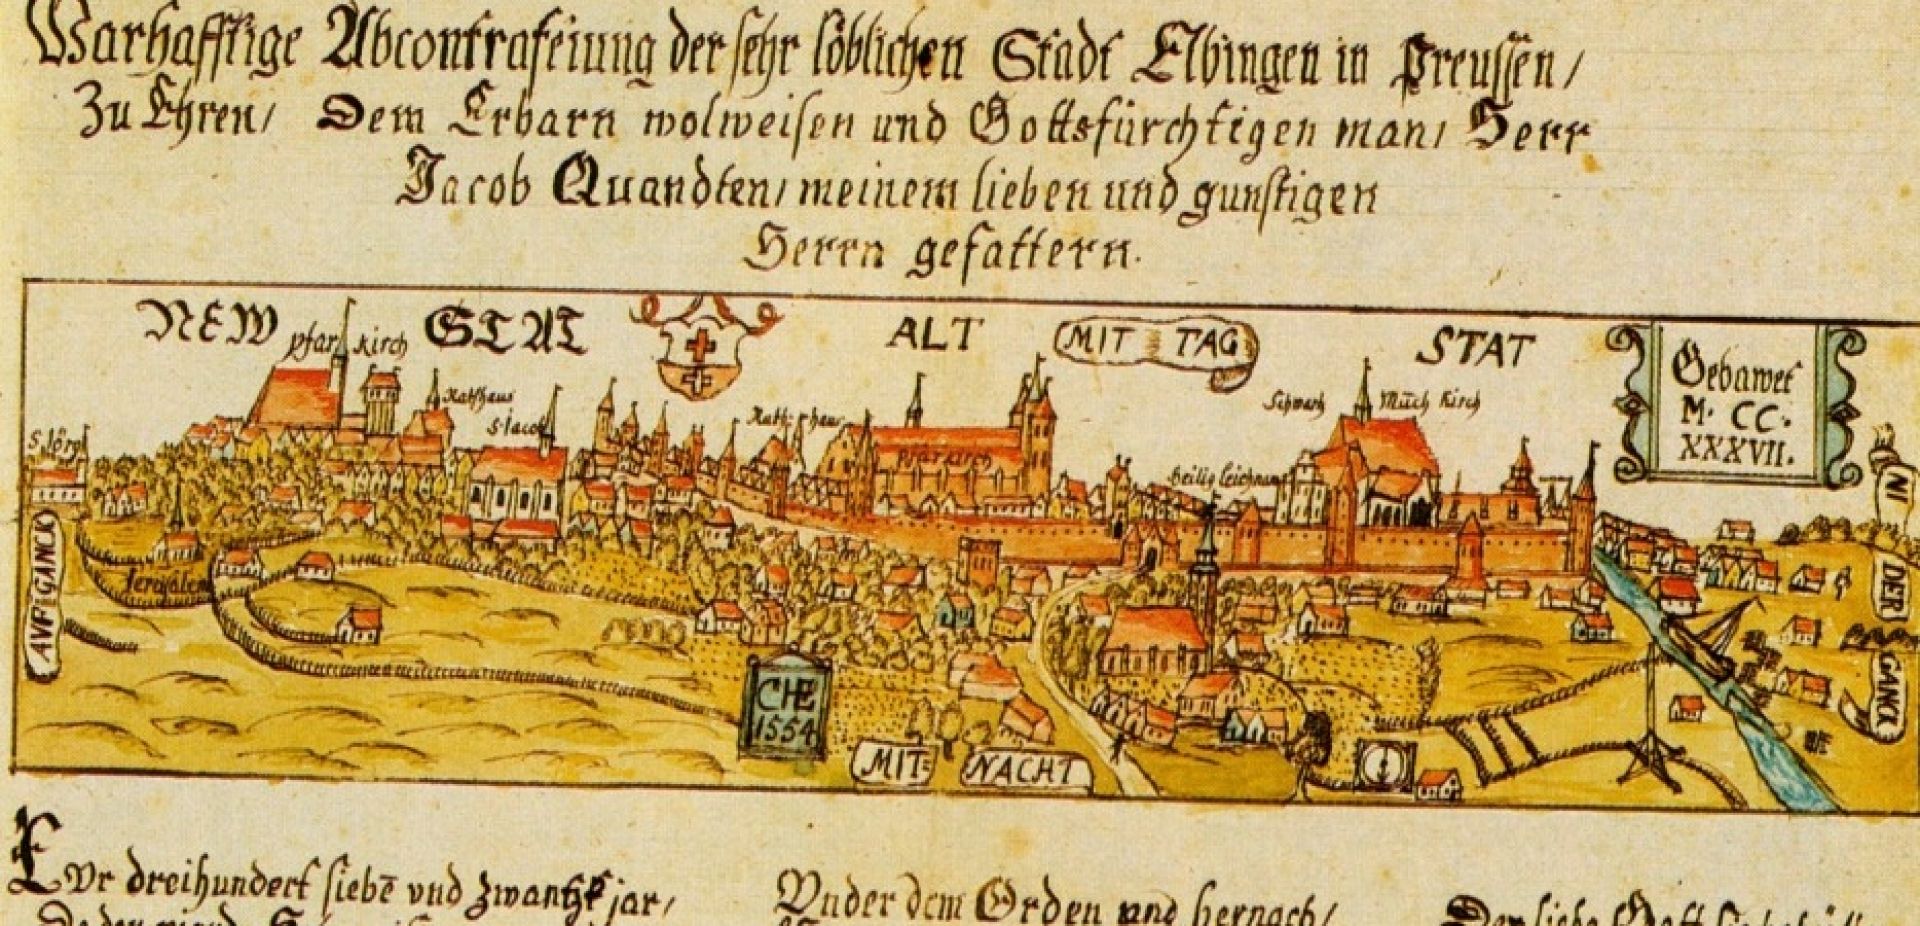 Warhafftige Abcontrafeiung der sehr löblichen Stadt Elbingen in Preussen/
Zu Ehren/ Dem Erbarn wolweisen und Gottsfürchtigen man/ Herr
Jacob Quandten/ meinem lieben und gunstigen
Herrn gefattern.
NEW STAT
ALT STAT
MIT TAG
Gebawet
M. CC.
XXXVII.
pfar kirch
Rathhaus
S Jacob
S. Jörg
Rath: haus
Pfarkirch
Schwartz Münch Kirch
Heilig Leichnam
NI
DER
GANCK
AVFGANCK
Jerusalem
CHE
1554
MIT= NACHT
Vor dreihundert siebē vnd zwantzig jar/
Vnder dem Orden und hernach/
Der liebe Gott